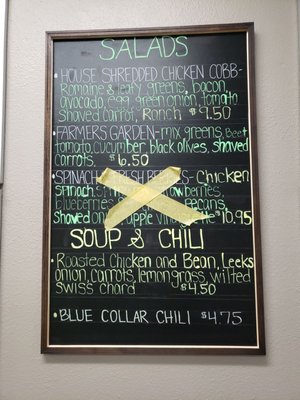 SALADS
• HOUSE SHREDDED CHICKEN COBB-
Romaine & leafy greens, bacon,
avocado, egg, green onion, tomato
Shaved carrot, Ranch $9.50
• FARMERS GARDEN- mix greens, beet
tomato, cucumber, black olives, shaved
carrots. $6.50
SPINACH FRESH - Chicken
spinach
blueberries pecans,
Shaved apple vinegar $10.95
SOUP & CHILI
• Roasted Chicken and Bean, Leeks
onion, carrots, lemongrass, wilted
swiss chard $4.50
• BLUE COLLAR CHILI $4.75